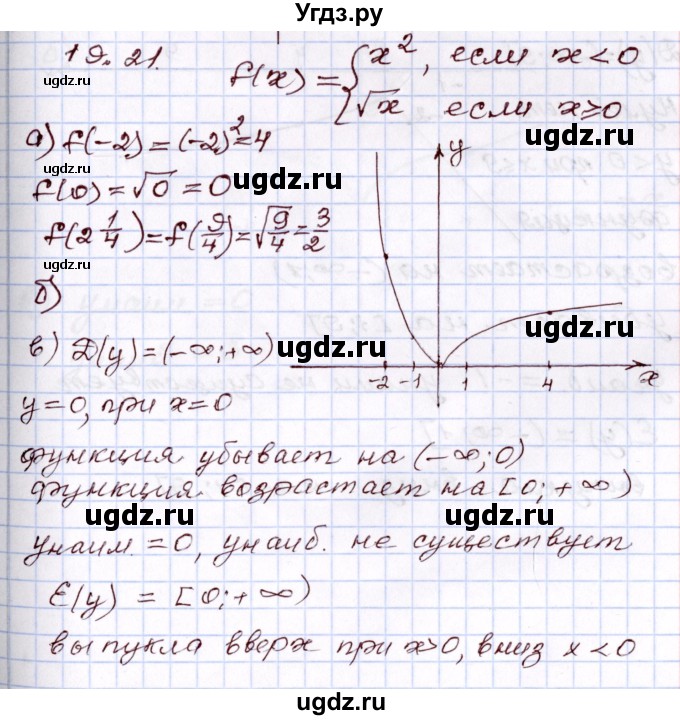 Угдз.ру
19.21.
f(x) = { x², если x < 0
√x если x ≥ 0
ugdz.ru
а) f(-2) = (-2)² = 4
ugdz.ru
f(0) = √0 = 0
ugdz.ru
f(2 1/4) = f(9/4) = √9/4 = 3/2
ugdz.ru
y
б)
в) D(y) = (-∞; +∞)
ugdz.ru
-2 -1 1 4 x
y = 0, при x = 0
функция убывает на (-∞; 0)
функция возрастает на [0; +∞)
ugdz.ru ugdz.ru
yнаим. = 0, yнаиб. не существует
E(y) = [0; +∞)
ugdz.ru
выпукла вверх при x>0, вниз x < 0
ugdz.ru ugdz.ru